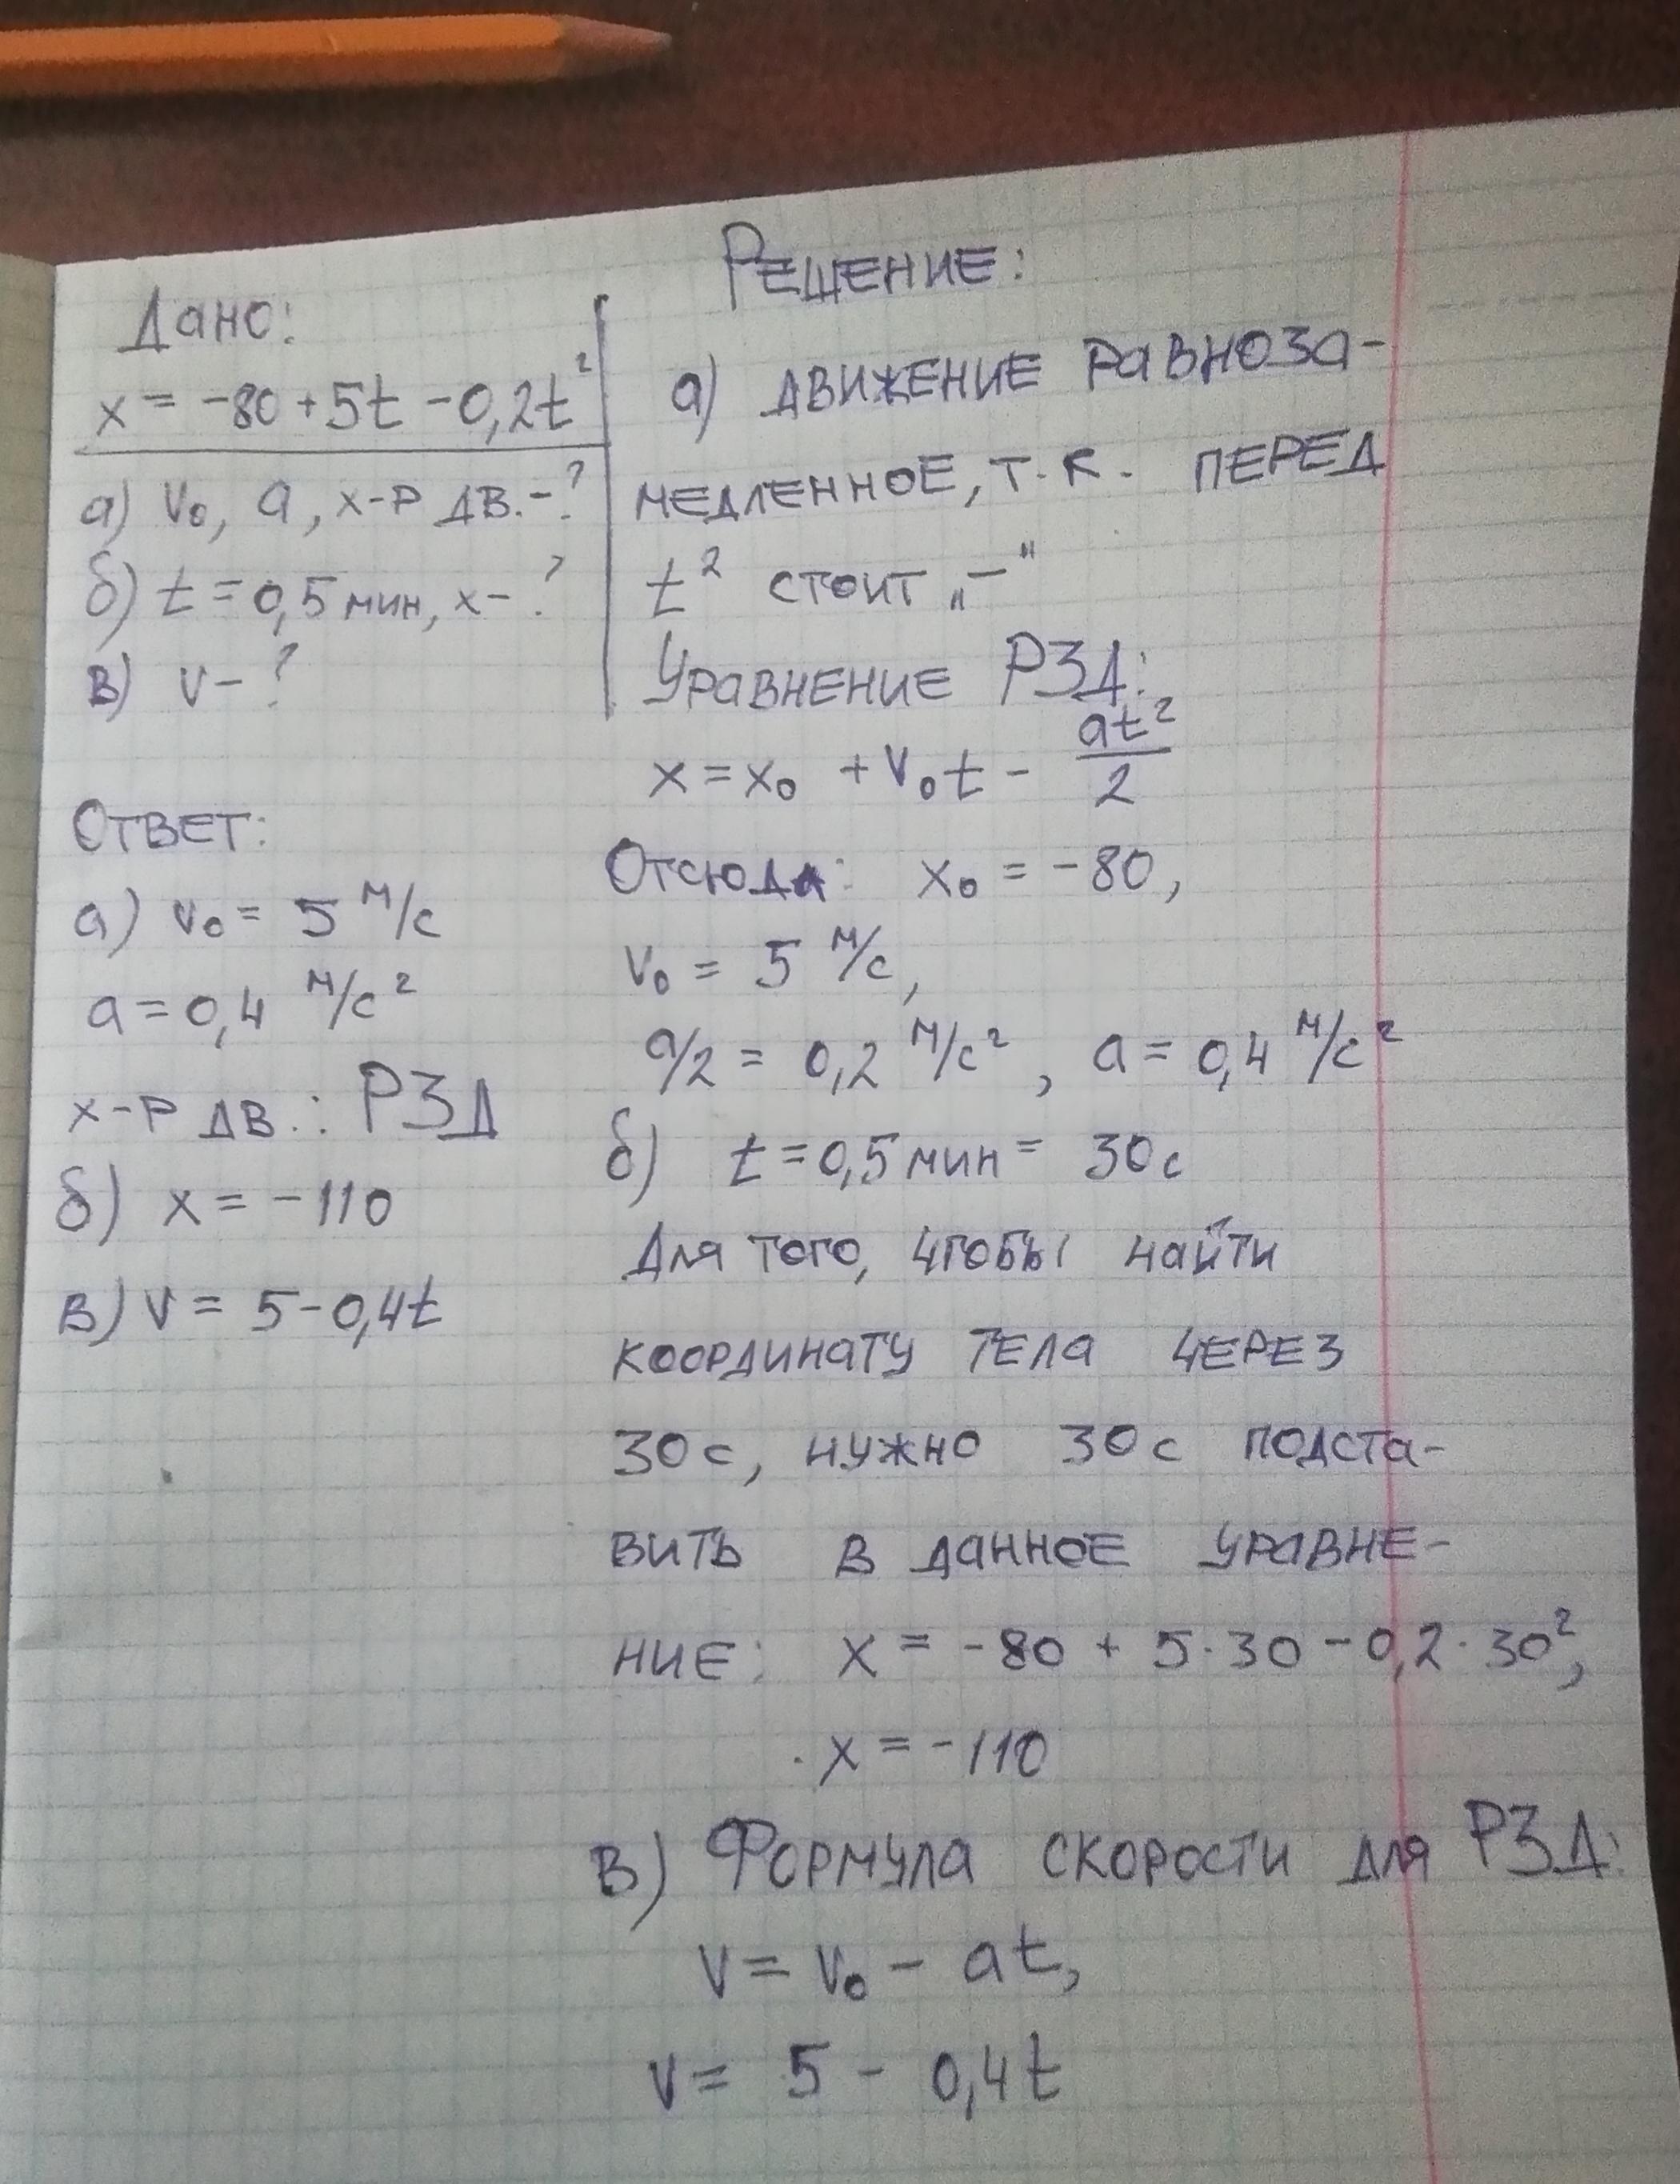 Дано:
x = -80 + 5t - 0,2t²
а) v₀, a, х-р дв. - ?
б) t = 0,5 мин, x - ?
в) v - ?
Ответ:
а) v₀ = 5 м/с
a = 0,4 м/с²
х-р дв.: РЗД
б) x = -110
в) v = 5 - 0,4t
Решение:
а) движение равноза-
медленное, т.к. перед
t² стоит „-"
Уравнение РЗД:
x = x₀ + v₀t - at²/2
Отсюда: x₀ = -80,
v₀ = 5 м/с,
a/2 = 0,2 м/с², a = 0,4 м/с²
б) t = 0,5 мин = 30 с
Для того, чтобы найти
координату тела через
30 с, нужно 30 с подста-
вить в данное уравне-
ние: x = -80 + 5·30 - 0,2·30²,
x = -110
в) Формула скорости для РЗД:
v = v₀ - at,
v = 5 - 0,4t